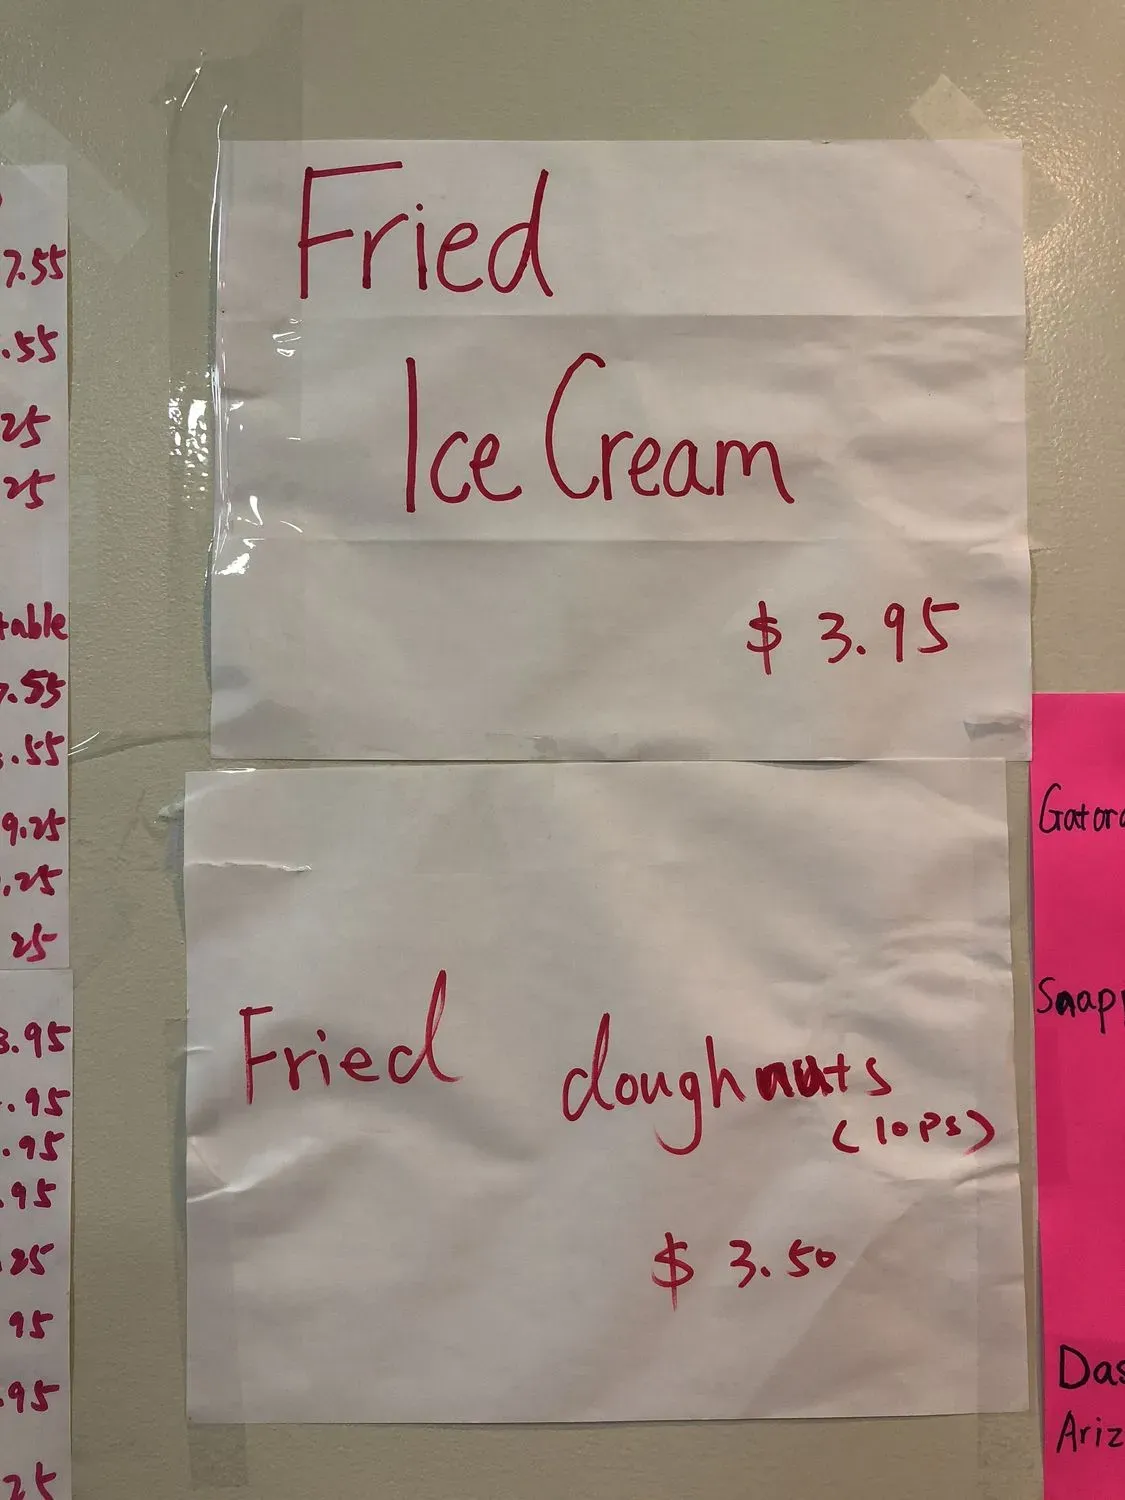 7.55
.55
25
25
table
.55
.55
9.25
.25
25
3.95
.95
.95
.95
.25
95
.95
25
Fried
Ice Cream
$ 3.95
Fried doughnuts
(10ps)
$ 3.50
Gator
Snapp
Das
Ariz